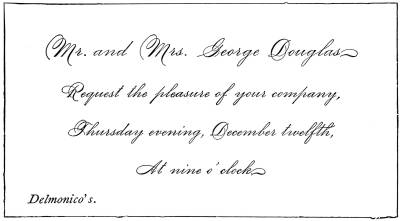 Mr. and Mrs. George Douglas
Request the pleasure of your company,
Thursday evening, December twelfth,
At nine o'clock
Delmonico's.